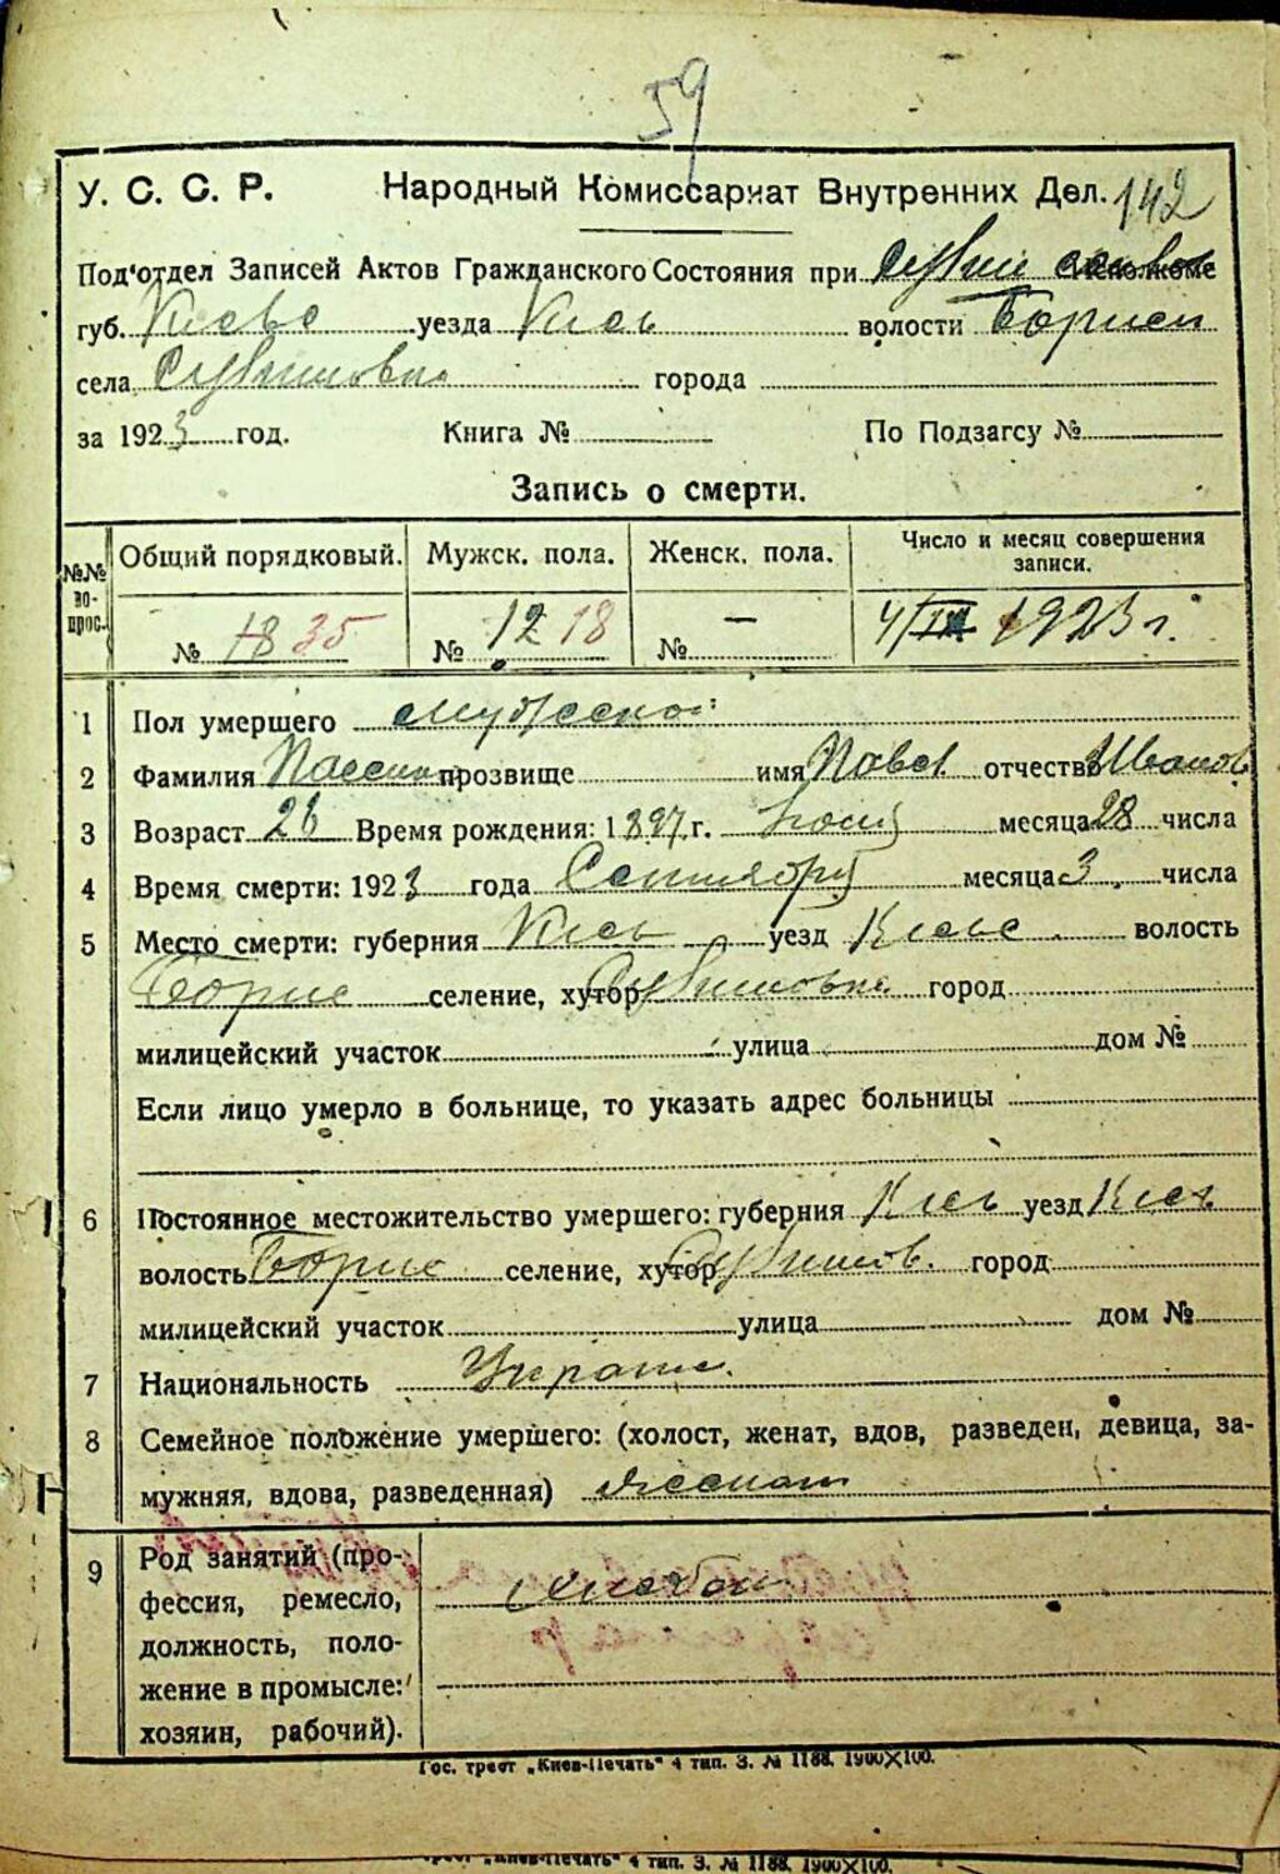 59
У. С. С. Р. Народный Комиссариат Внутренних Дел. 142
Под'отдел Записей Актов Гражданского Состояния при Исполкоме
губ. Киевс уезда Киев волости Борисп
села города
за 1923 год. Книга № По Подзагсу №
Запись о смерти.
№№ вопрос. Общий порядковый. Мужск. пола. Женск. пола. Число и месяц совершения записи.
№ 18 35 № 12 18 № — 4/IX 1923 г.
1 Пол умершего мужской
2 Фамилия прозвище имя Павел отчество Иванов
3 Возраст 26 Время рождения: 1897 г. месяца 28 числа
4 Время смерти: 1923 года Сентября месяца 3 числа
5 Место смерти: губерния Киев уезд Киевс волость
Борис селение, хутор город
милицейский участок улица дом №
Если лицо умерло в больнице, то указать адрес больницы
6 Постоянное местожительство умершего: губерния Киев уезд Киев
волость Борис селение, хутор город
милицейский участок улица дом №
7 Национальность Украин.
8 Семейное положение умершего: (холост, женат, вдов, разведен, девица, за-
мужняя, вдова, разведенная) женат
9 Род занятий (про-
фессия, ремесло, хлебоп
должность, поло-
жение в промысле:
хозяин, рабочий).
Гос. трест „Киев-Печать" 4 тип. З. № 1188. 1900X100.
трест „Киев-Печать" 4 тип. З. № 1188. 1900X100.